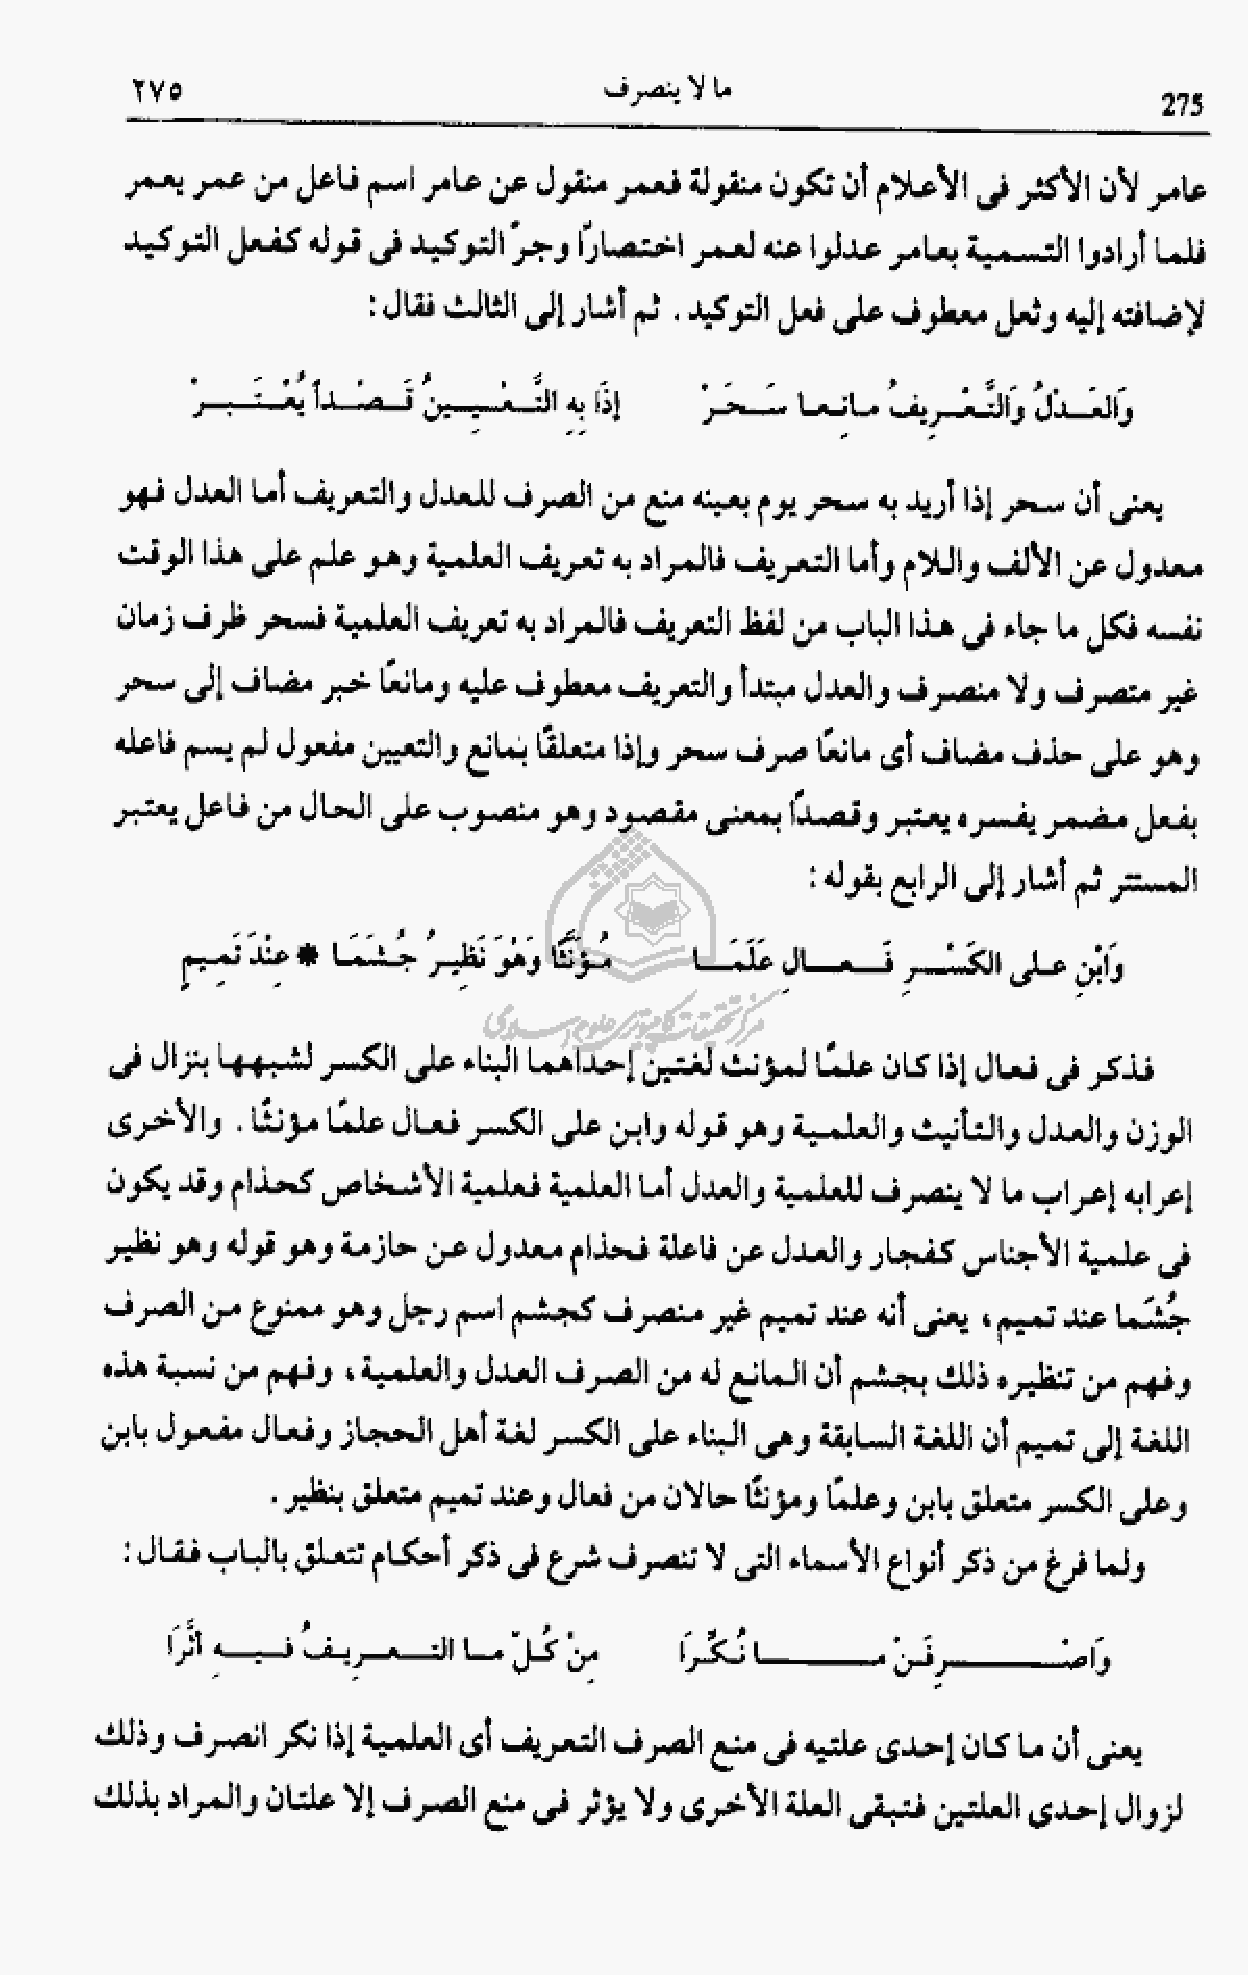 275 ما لا ينصرف ٢٧٥
عامر لأن الأكثر فى الأعلام أن تكون منقولة فعمر منقول عن عامر اسم فاعل من عمر يعمر
فلما أرادوا التسمية بعامر عدلوا عنه لعمر اختصاراً وجرّ التوكيد فى قوله كفعل التوكيد
لإضافته إليه وثعل معطوف على فعل التوكيد . ثم أشار إلى الثالث فقال :
وَالعَدْلُ وَالتَّعْرِيفُ مانِعا سَحَرْ إذَا بِهِ التَّعْيِينُ قَصْداً يُعْتَبَرْ
يعنى أن سحر إذا أريد به سحر يوم بعينه منع من الصرف للعدل والتعريف أما العدل فهو
معدول عن الألف واللام وأما التعريف فالمراد به تعريف العلمية وهو علم على هذا الوقت
نفسه فكل ما جاء فى هذا الباب من لفظ التعريف فالمراد به تعريف العلمية فسحر ظرف زمان
غير متصرف ولا منصرف والعدل مبتدأ والتعريف معطوف عليه ومانعًا خبر مضاف إلى سحر
وهو على حذف مضاف أى مانعاً صرف سحر وإذا متعلقًا بمانع والتعيين مفعول لم يسم فاعله
بفعل مضمر يفسره يعتبر وقصداً بمعنى مقصود وهو منصوب على الحال من فاعل يعتبر
المستتر ثم أشار إلى الرابع بقوله :
وَابْنِ على الكَسْرِ فَعالِ عَلَمَا مُؤَنَّثًا وَهْوَ نَظِيرُ جُشَمَا * عِنْدَ تَمِيمٍ
مركز تحقيقات كامپيوترى علوم اسلامى
فذكر فى فعال إذا كان علمًا لمؤنث لغتين إحداهما البناء على الكسر لشبهها بنزال فى
الوزن والعدل والتأنيث والعلمية وهو قوله وابن على الكسر فعال علمًا مؤنثًا . والأخرى
إعرابه إعراب ما لا ينصرف للعلمية والعدل أما العلمية فعلمية الأشخاص كحذام وقد يكون
فى علمية الأجناس كفجار والعدل عن فاعلة فحذام معدول عن حازمة وهو قوله وهو نظير
جُشَما عند تميم ، يعنى أنه عند تميم غير منصرف كجشم اسم رجل وهو ممنوع من الصرف
وفهم من تنظيره ذلك بجشم أن المانع له من الصرف العدل والعلمية ، وفهم من نسبة هذه
اللغة إلى تميم أن اللغة السابقة وهى البناء على الكسر لغة أهل الحجاز وفعال مفعول بابن
وعلى الكسر متعلق بابن وعلمًا ومؤنثًا حالان من فعال وعند تميم متعلق بنظير .
ولما فرغ من ذكر أنواع الأسماء التى لا تنصرف شرع فى ذكر أحكام تتعلق بالباب فقال :
وَاصْرِفَنْ ما نُكِّرَا مِنْ كُلِّ ما التعرِيفُ فيهِ أثَّرَا
يعنى أن ما كان إحدى علتيه فى منع الصرف التعريف أى العلمية إذا نكر انصرف وذلك
لزوال إحدى العلتين فتبقى العلة الأخرى ولا يؤثر فى منع الصرف إلا علتان والمراد بذلك